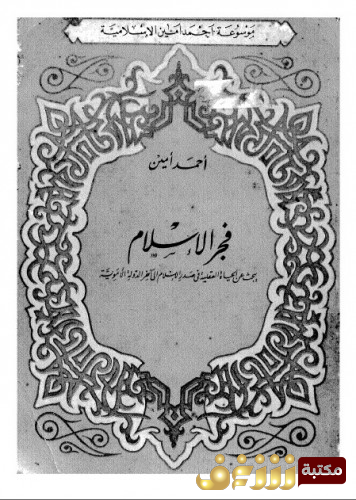 موسوعة أحمد أمين الإسلامية
أحمد أمين
فجر الإسلام
يبحث عن الحياة العقلية في صدر الإسلام إلى آخر الدولة الأموية
مكتبة